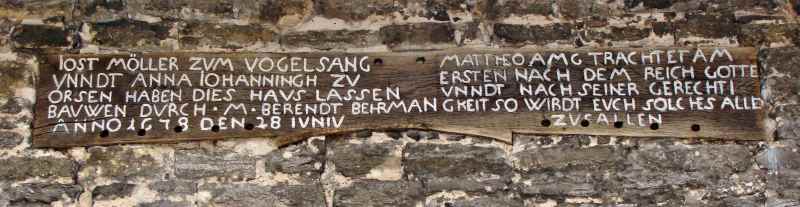 IOST MÖLLER ZVM VOGELSANG
VNNDT ANNA IOHANNINGH ZV
ORSEN HABEN DIES HAVS LASSEN
BAVWEN DVRCH · M · BERENDT BEHRMAN
ANNO 1678 DEN 28 IVNIV
MATTHEO AM 6 TRACHTET AM
ERSTEN NACH DEM REICH GOTTE
VNNDT NACH SEINER GERECHTI
GKEIT SO WIRDT EVCH SOLCHES ALLD
ZVSALLEN